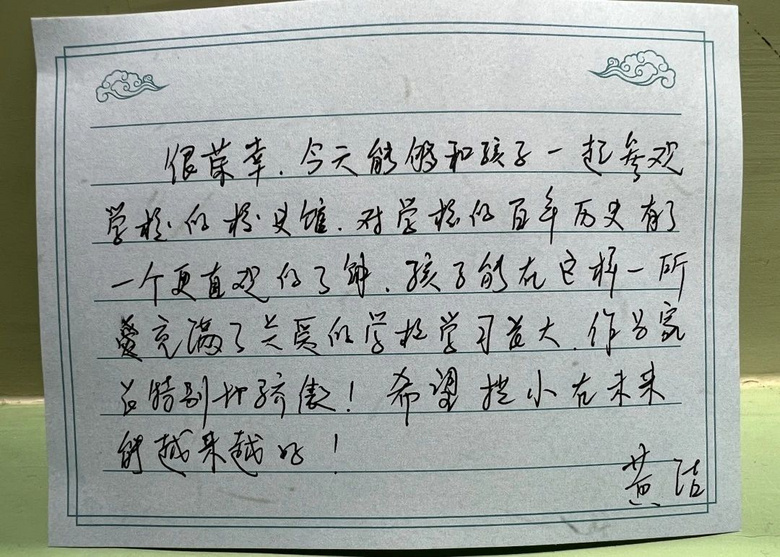 很荣幸.今天能够和孩子一起参观
学校的校史馆.对学校的百年历史有了
一个更直观的了解.孩子能在这样一所
充满了关爱的学校学习长大.作为家
长特别地骄傲!希望 小在未来
能越来越好!
黄洁